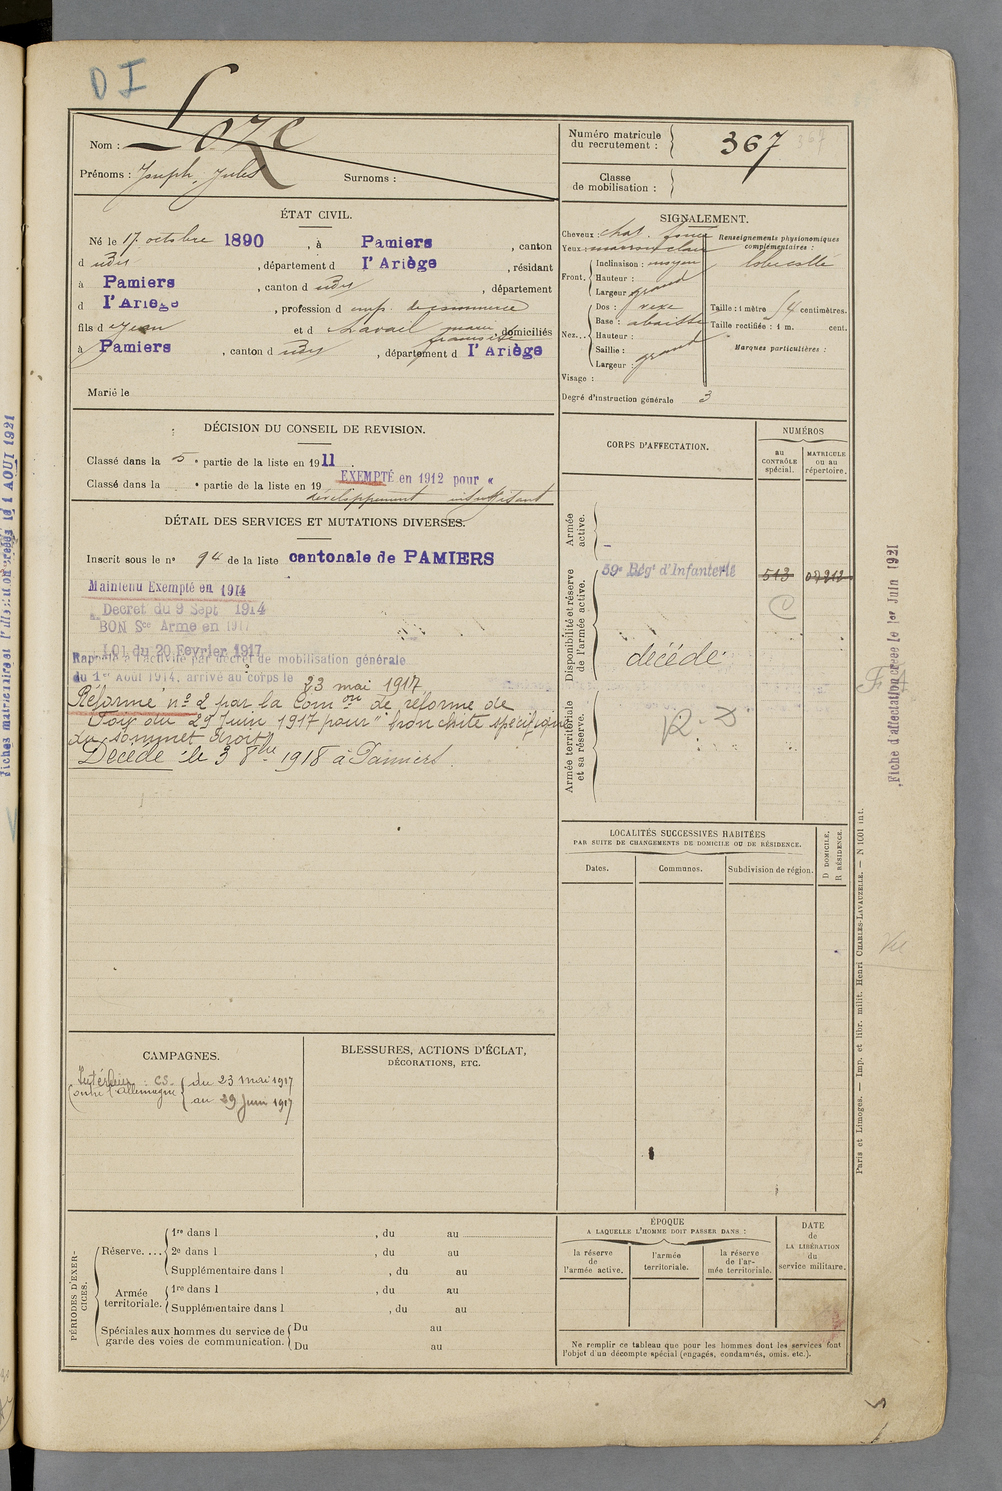 D I
Nom : Loze
Prénoms : Joseph, Jules Surnoms :
Numéro matricule
du recrutement : 367
Classe
de mobilisation :
ÉTAT CIVIL.
Né le 17 octobre 1890 , à Pamiers , canton
d udit , département d l'Ariège , résidant
à Pamiers , canton d udit , département
d l'Ariège , profession d emp. de commerce
fils d e Jean et d domiciliés
à Pamiers , canton d udit , département d l'Ariège
Marié le
SIGNALEMENT.
Cheveux : chat.
Yeux : marron clair
Front. Inclinaison : moyen
Hauteur :
Largeur : grand
Nez... Dos : vexe
Base : abaissé
Hauteur :
Saillie :
Largeur : grand
Visage :
Degré d'instruction générale 3
Renseignements physionomiques
complémentaires :
Taille : 1 mètre centimètres.
Taille rectifiée : 1 m. cent.
Marques particulières :
DÉCISION DU CONSEIL DE REVISION.
Classé dans la 5e partie de la liste en 1911
Classé dans la e partie de la liste en 19 EXEMPTÉ en 1912 pour "
développement insuffisant
DÉTAIL DES SERVICES ET MUTATIONS DIVERSES.
Inscrit sous le n° 94 de la liste cantonale de PAMIERS
Maintenu Exempté en 1914
Decret du 9 Sept 1914
BON Sce Armé en 1917
LOI du 20 Fevrier 1917
Rappelé à l'activité par décret de mobilisation générale
du 1er Août 1914, arrivé au corps le 23 mai 1917
Réformé n° 2 par la Comon de réforme de
Foix du 29 Juin 1917 pour "bronchite spécifique
du sommet droit"
Décédé le 3 8bre 1918 à Pamiers.
CORPS D'AFFECTATION.
NUMÉROS
au
CONTRÔLE
spécial.
MATRICULE
ou au
répertoire.
Armée
active.
Disponibilité et réserve
de l'armée active.
59e Régt d'Infanterie 513
C
décédé
Armée territoriale
et sa réserve.
LOCALITÉS SUCCESSIVES HABITÉES
PAR SUITE DE CHANGEMENTS DE DOMICILE OU DE RÉSIDENCE.
Dates.
Communes.
Subdivision de région.
D DOMICILE.
R RÉSIDENCE.
CAMPAGNES.
Intérieur : CS. du 23 mai 1917
contre l'Allemagne au 29 Juin 1917
BLESSURES, ACTIONS D'ÉCLAT,
DÉCORATIONS, ETC.
PÉRIODES D'EXER-
CICES.
Réserve.... 1re dans l , du au
2e dans l , du au
Supplémentaire dans l , du au
Armée
territoriale. 1re dans l , du au
Supplémentaire dans l , du au
Spéciales aux hommes du service de
garde des voies de communication. Du au
Du au
ÉPOQUE
A LAQUELLE L'HOMME DOIT PASSER DANS :
la réserve
de
l'armée active.
l'armée
territoriale.
la réserve
de l'ar-
mée territoriale.
DATE
de
LA LIBÉRATION
du
service militaire.
Ne remplir ce tableau que pour les hommes dont les services font
l'objet d'un décompte spécial (engagés, condamnés, omis, etc.).
Fiche d'affectation créée le 1er Juin 1921
Paris et Limoges. — Imp. et libr. milit. Henri CHARLES-LAVAUZELLE. — N 1001 int.
Vu